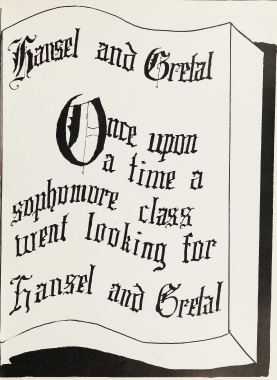 Hansel and Gretal
Once upon
a time a
sophomore class
went looking for
Hansel and Gretal